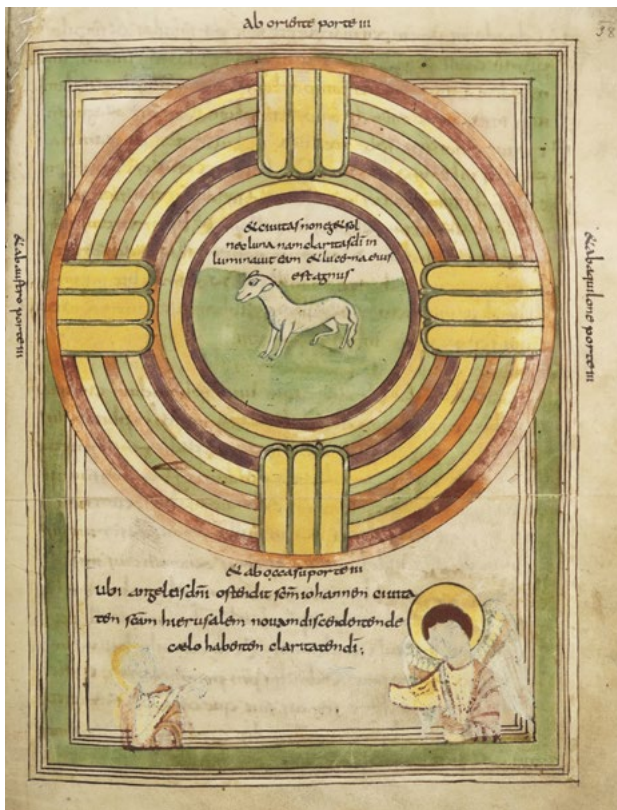 ab oriente porte iii
38
& civitas non eg& sol
nec luna nam claritas dī in
luminavit eam & lucerna eius
est agnus
& ab austro porte iii
& ab aquilone porte iii
& ab occasu porte iii
ubi angelus dn̄i ostendit sc̄m iohannen civita
ten sc̄am hierusalem novam discendenten de
caelo habenten claritaten dī;